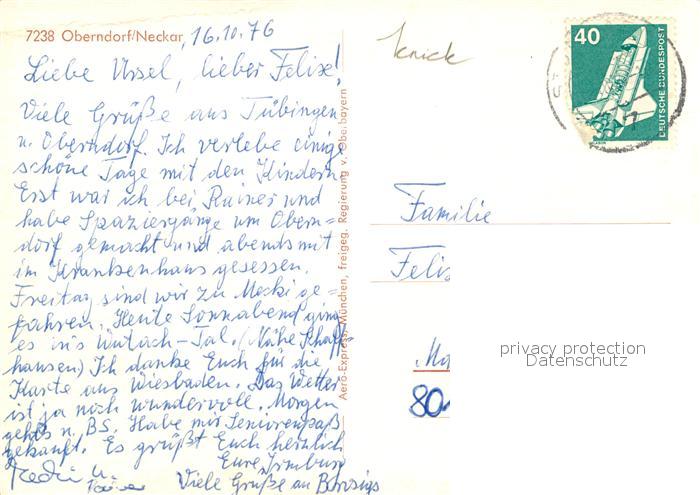 7238 Oberndorf/Neckar, 16.10.76
Liebe Ursel, lieber Felix!
Viele Grüße aus Tübingen
u. Oberndorf. Ich verlebe einige
schöne Tage mit den Kindern
Erst war ich bei Rainer und
habe Spaziergänge um Obern-
dorf gemacht und abends mit
im Krankenhaus gesessen.
Freitag sind wir zu Mecki ge-
fahren. Heute Sonnabend ging
es in's Wutach-Tal. (Nähe Schaff-
hausen) Ich danke Euch für die
Karte aus Wiesbaden. Das Wetter
ist ja noch wundervoll. Morgen
geht's n. BS. Habe mir Seniorenpaß
gekauft. Es grüßt Euch herzlich
Eure Irmburg
Viele Grüße an
Aero-Express, München, freigeg. Regierung v. Oberbayern
knick
40
DEUTSCHE BUNDESPOST
Familie
Felis
80
privacy protection
Datenschutz